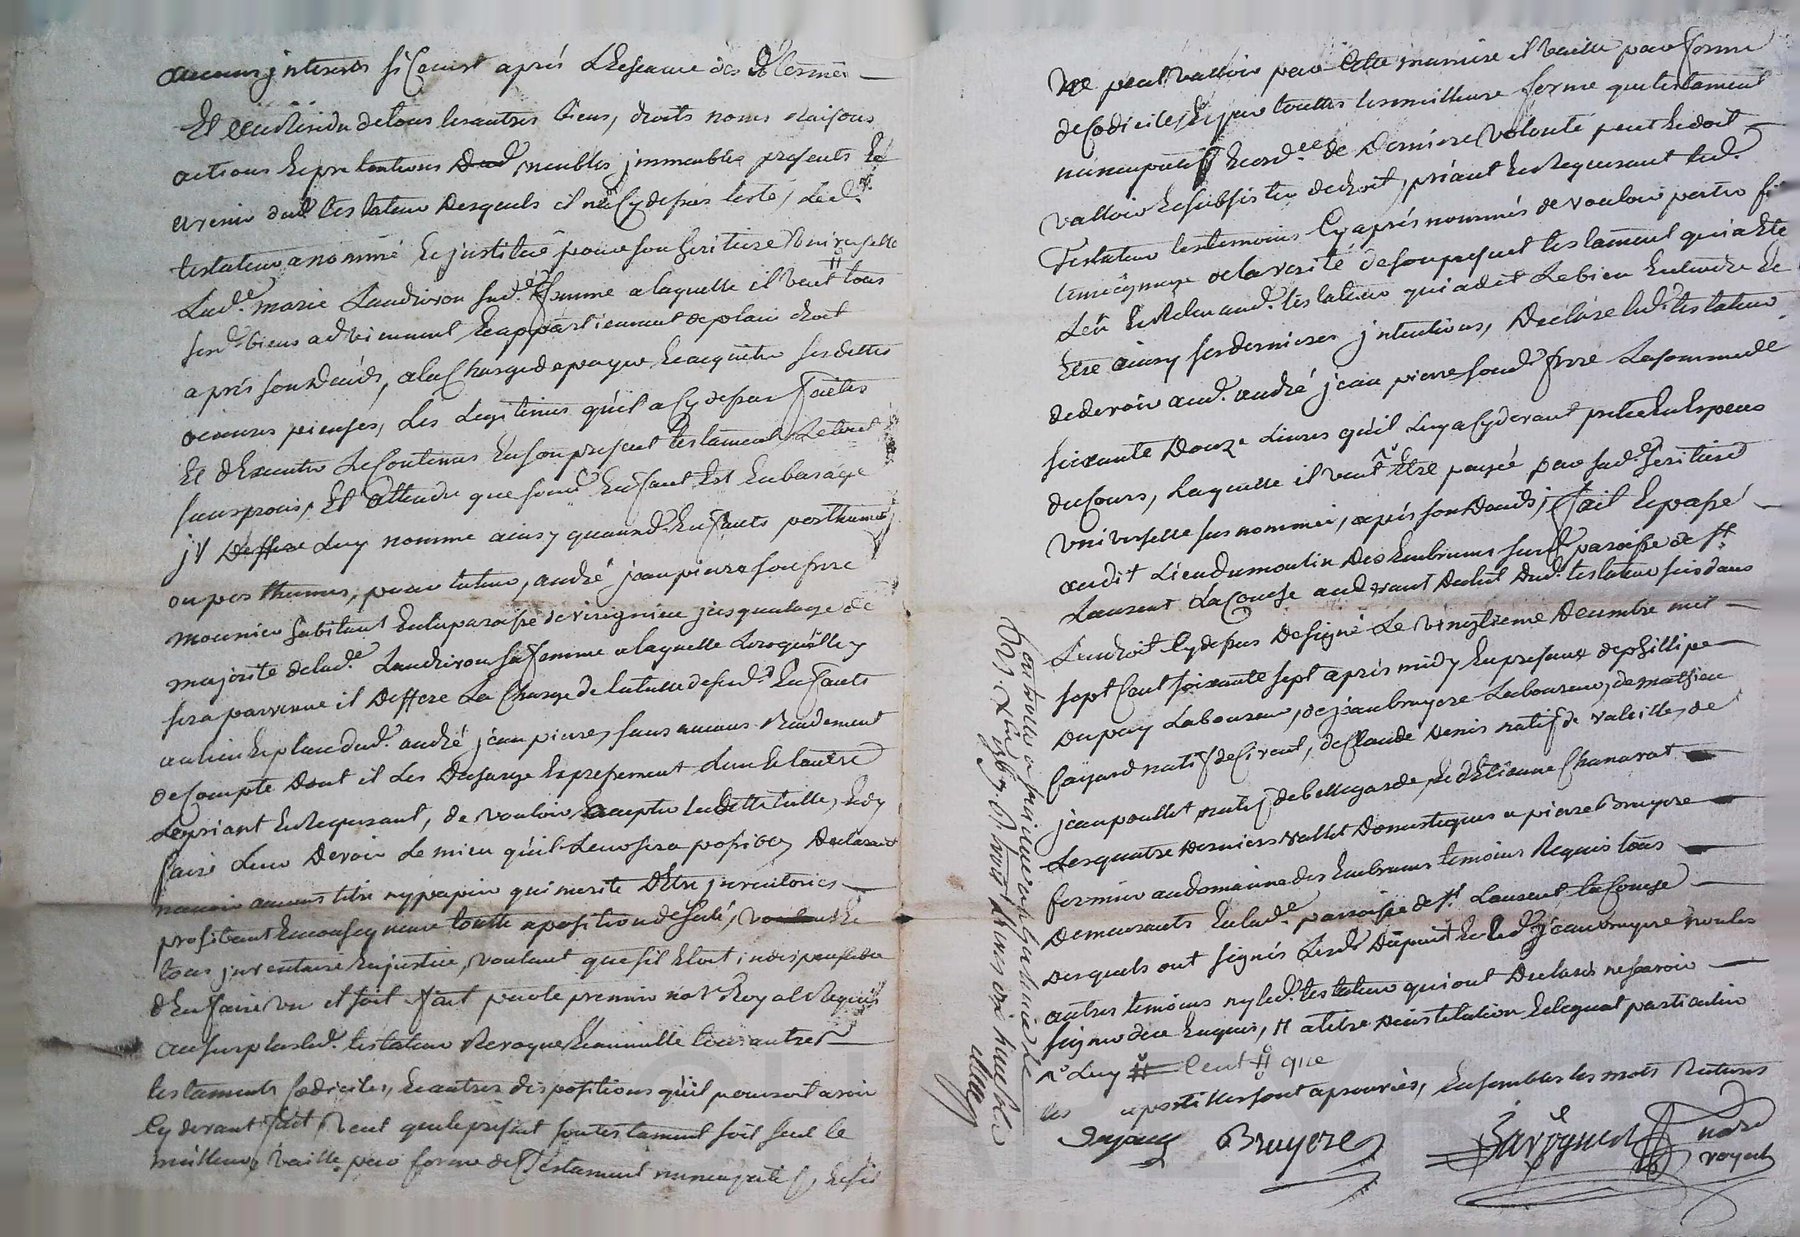 aucuns interests si ce n'est après l'Escence des termes
Et au Residu de tous les autres biens, droits noms Raisons
actions et pretentions Dud. meubles immeubles presents et
avenir dud testateur Desquels il n'a cy dessus testé, led.
testateur a nommé et institué pour son heritiere Universelle
Lad.e marie Landivron sad.e femme a laquelle il veut tous
sesd. biens adviennent et appartiennent de plain droit
après son Décéds, a la Charge de payer et acquitter ses dettes
œuvres pieuses, les Legitimes qu'il a cy dessus faites
et d'Executer le Contenus En son present testament Le tout
sans procis, Et attendu que son Enfant Est En bas age
il Deffere Luy nomme ainsy quaux d. Enfants posthume
ou posthumes, pour tuteur, andré jean pierre son frere
meunier habitant En la paroisse de virignieu jusqu'a l'age de
majorité de lad.e Landivron sa femme a laquelle Lorsqu'elle y
sera parvenue il Deffere La Charge de la tutelle desd.s Enfants
au lieu et place dud. andré jean pierre, sans aucun Rendement
de Compte Dont il Les Descharge Expressement L'un Et l'autre
Les priant Et Requerant, de vouloir accepter lad.e tutelle, Et d'y
faire Leur Devoir Le mieu qu'il Leur sera possible, Declarant
n'avoir aucuns titre ny papier qui merite D'Etre inventoriés
prohibant En consequence toutte aposition de scelé,
tous inventaire En justice, voulant que s'il Etoit indispensable
d'En faire un il soit fait par le premier not.e Royal Requis
au surplus led. testateur Revoque Et annulle tous autres
testaments Codiciles, Et autres dispositions qu'il pourroit avoir
Cy devant fait, Veut que le present son testament soit seul le
meilleur, Vaille par forme de Testament nuncupatif, Et s'il
Ne peut valloir par Cette maniere il Vaille par forme
de Codicile, Et par touttes les meilleure forme que testament
nuncupatif Et ord.ce de Derniere volonté peut Et doit
valloir Et subsister de droit, priant Et Requerant led.
Testateur les temoins Cy après nommés de vouloir porter
temoignage de la verité de son present testament qui a Eté
Leü Et Releu aud. testateur qui a dit Le bien Entendre Et
Etre ainsy ses dernieres intentions, Declare led. testateur
de devoir aud. andré jean pierre sond. frere La somme de
soixante Douze Livres qu'il Luy a Cy devant preté En Especes
du Cours, Laquelle il veut Etre payée par sad.e heritiere
Universelle sus nommée, après son Décéds; fait et passé
audit Lieu du moulin Des Embruns sus d. paroisse de S.t
Laurent La Conche au devant Dudit Dud. testateur sis dans
L'endroit Cy dessus Designé Le vingtieme Decembre mil
sept Cent soixante sept après midy En presence de phillipe
Dupuy Laboureur, de jean bruyere Laboureur, de mathieu
Cayard natif de Civent, de Claude Denis natif de valeilles, de
jean poullet natif de bellegarde, Et d'Etienne Chanavat
Les quatre Derniers vallet Domestiques a pierre Bruyere
fermier au domaine des Embruns temoins Requis tous
Demeurants En lad.e paroisse de S.t Laurent la Conche
Desquels ont signés Lesd. Dupuit Et led. jean bruyere non les
autres temoins ny led. testateur qui ont Declarés ne scavoir
signer de ce Enquis, # a titre D'institution Et legat particulier
Luy # Cent # que
les apostilles sont aprouvées, Ensembles les mots Ratures
Dupuy Bruyere Savoÿnet notre
royal